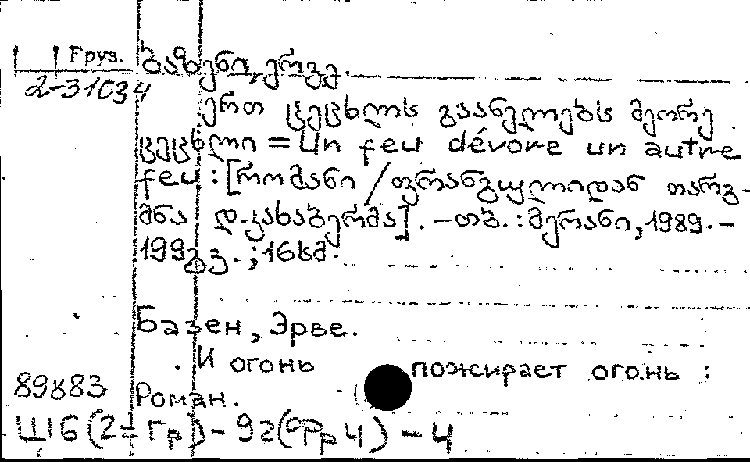 Груз.
ბაზენი, ერვე.
2-31034
ერთ ცეცხლს გაანელებს მეორე
ცეცხლი = Un feu dévore un autre
feu : [რომანი / ფრანგულიდან თარგ-
მნა დ. კახაბერმა]. – თბ. : მერანი, 1989. –
199გვ. ; 16სმ.
Базен, Эрве.
И огонь пожирает огонь :
89883
Роман.
Ш16(2=Гр)-92(Фр4) - 4